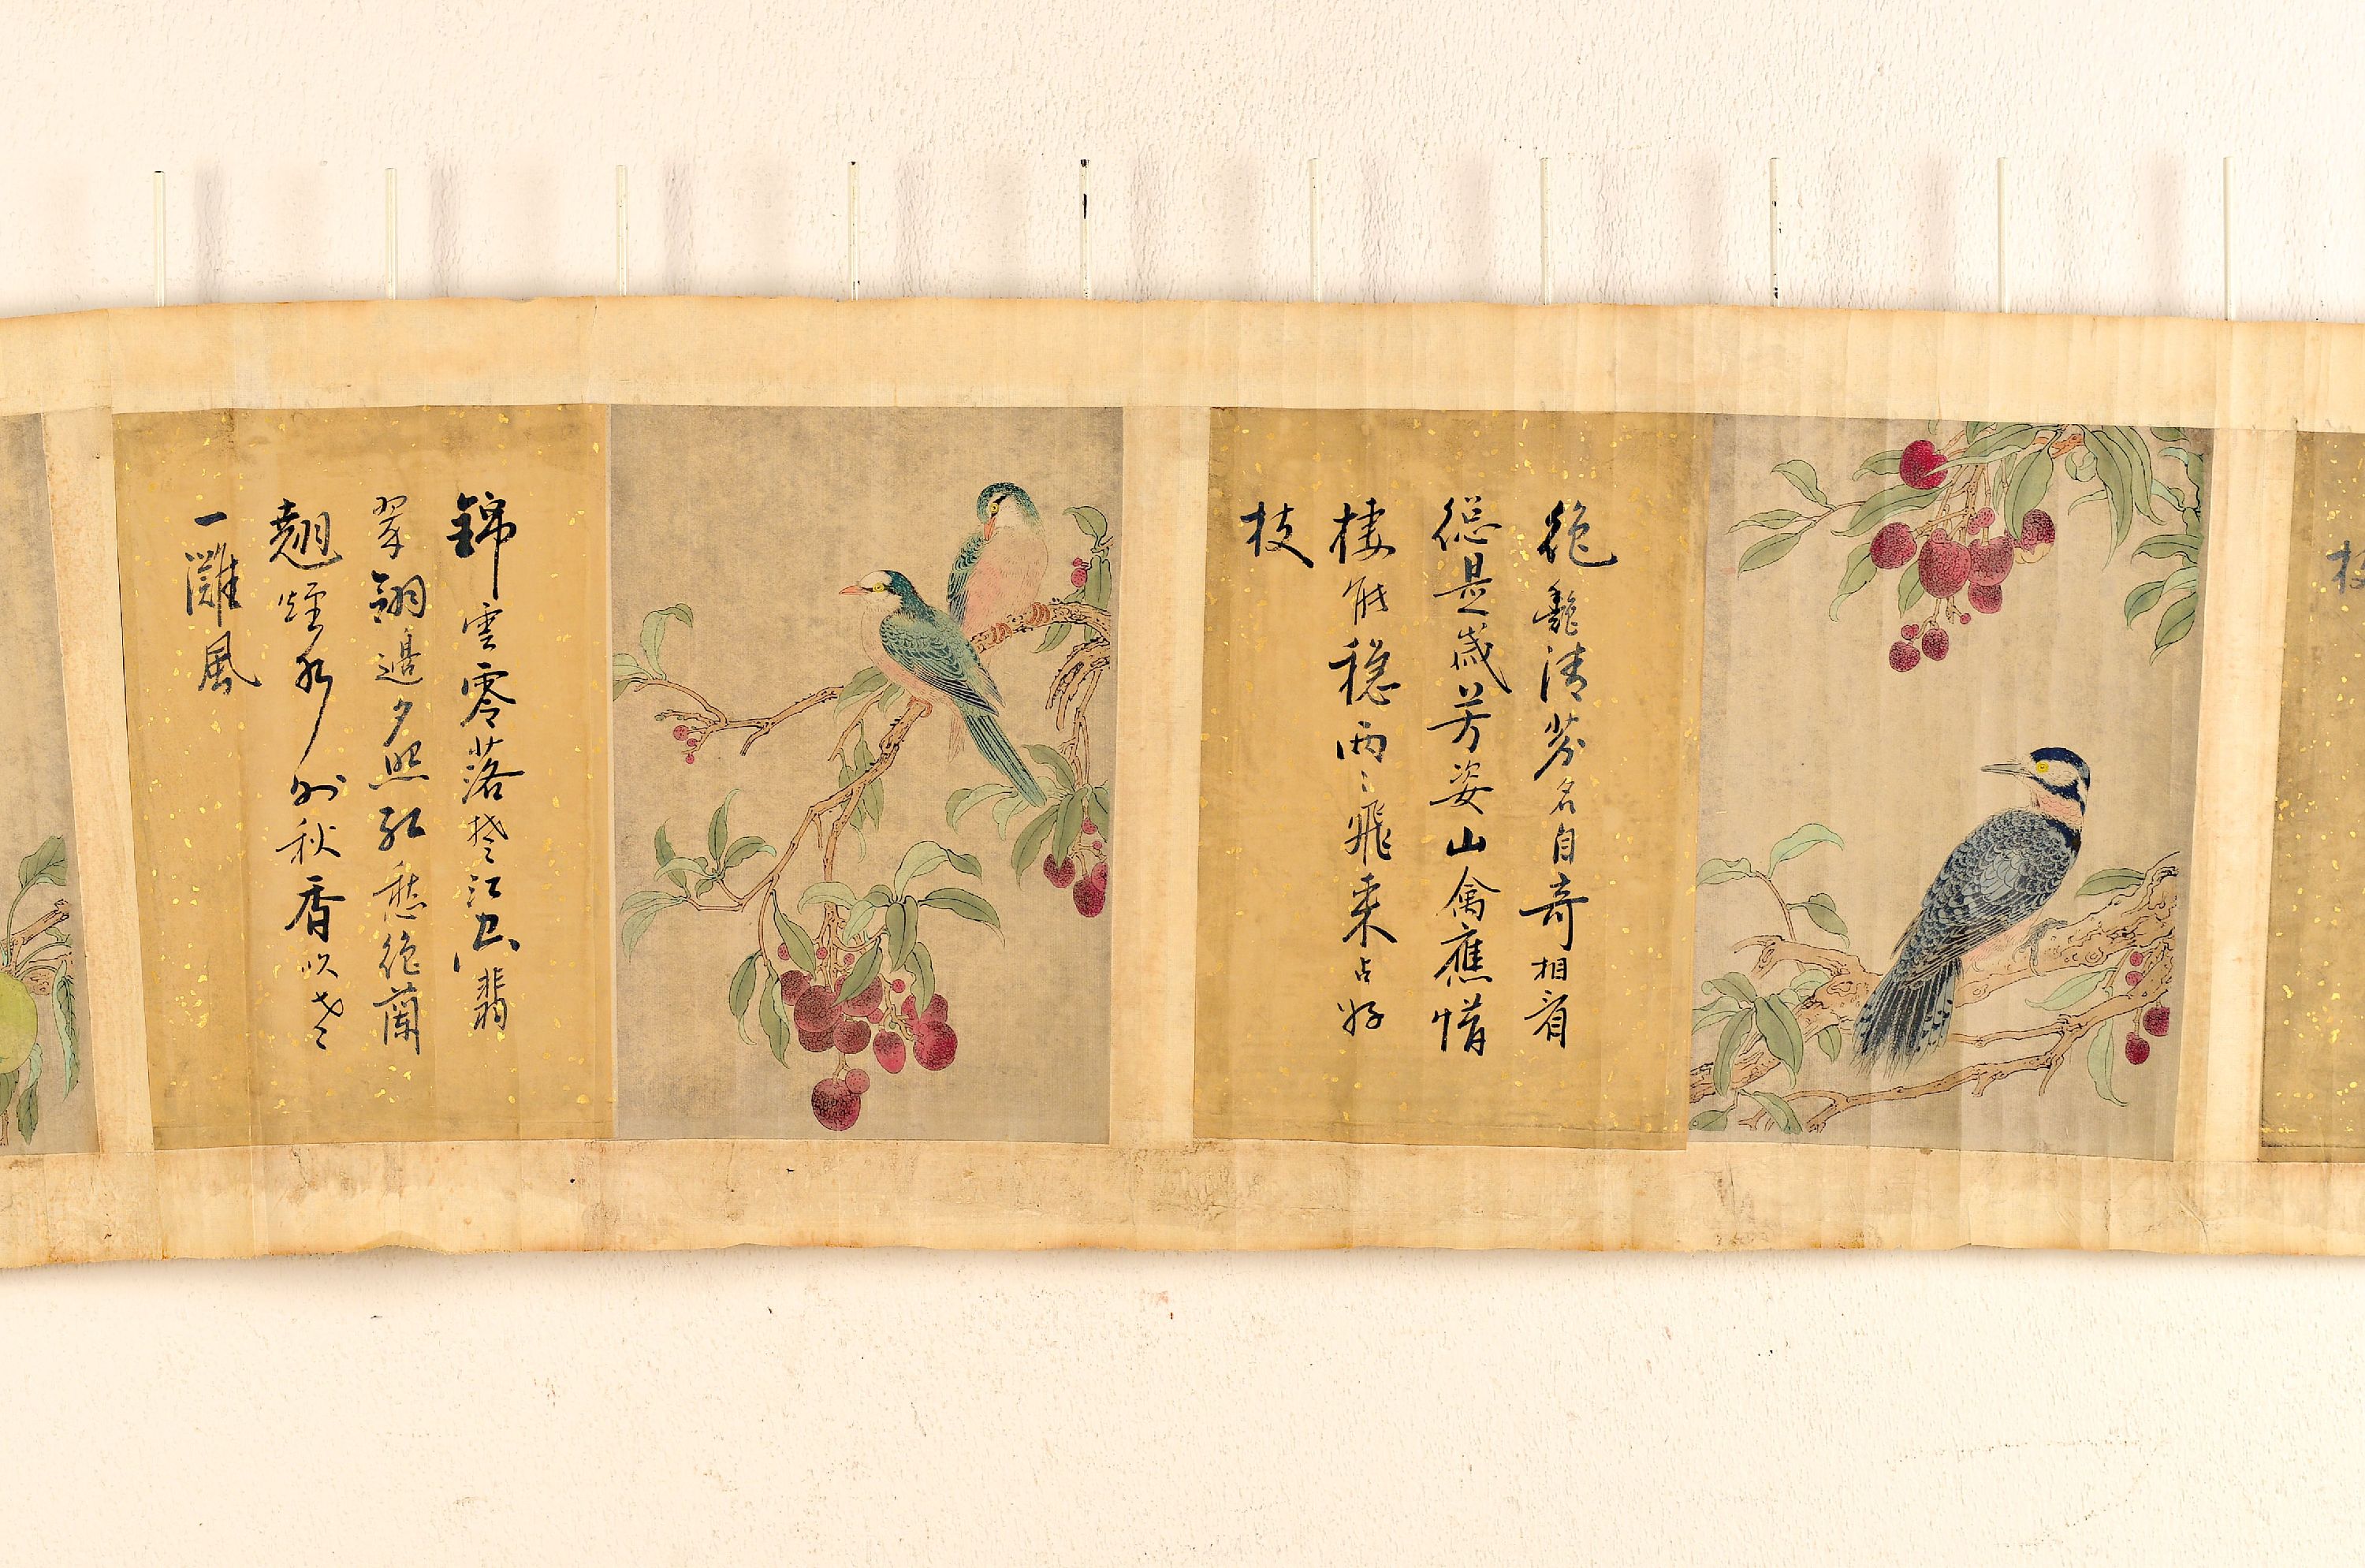 絶豔清芬名自奇相看
總是歲芳姿山禽應惜
棲能穩兩〻飛來占好
枝
錦雲零落楚江空翡
翠翎邊夕照紅愁絶蘭
翹煙水外秋香吹老
一灘風